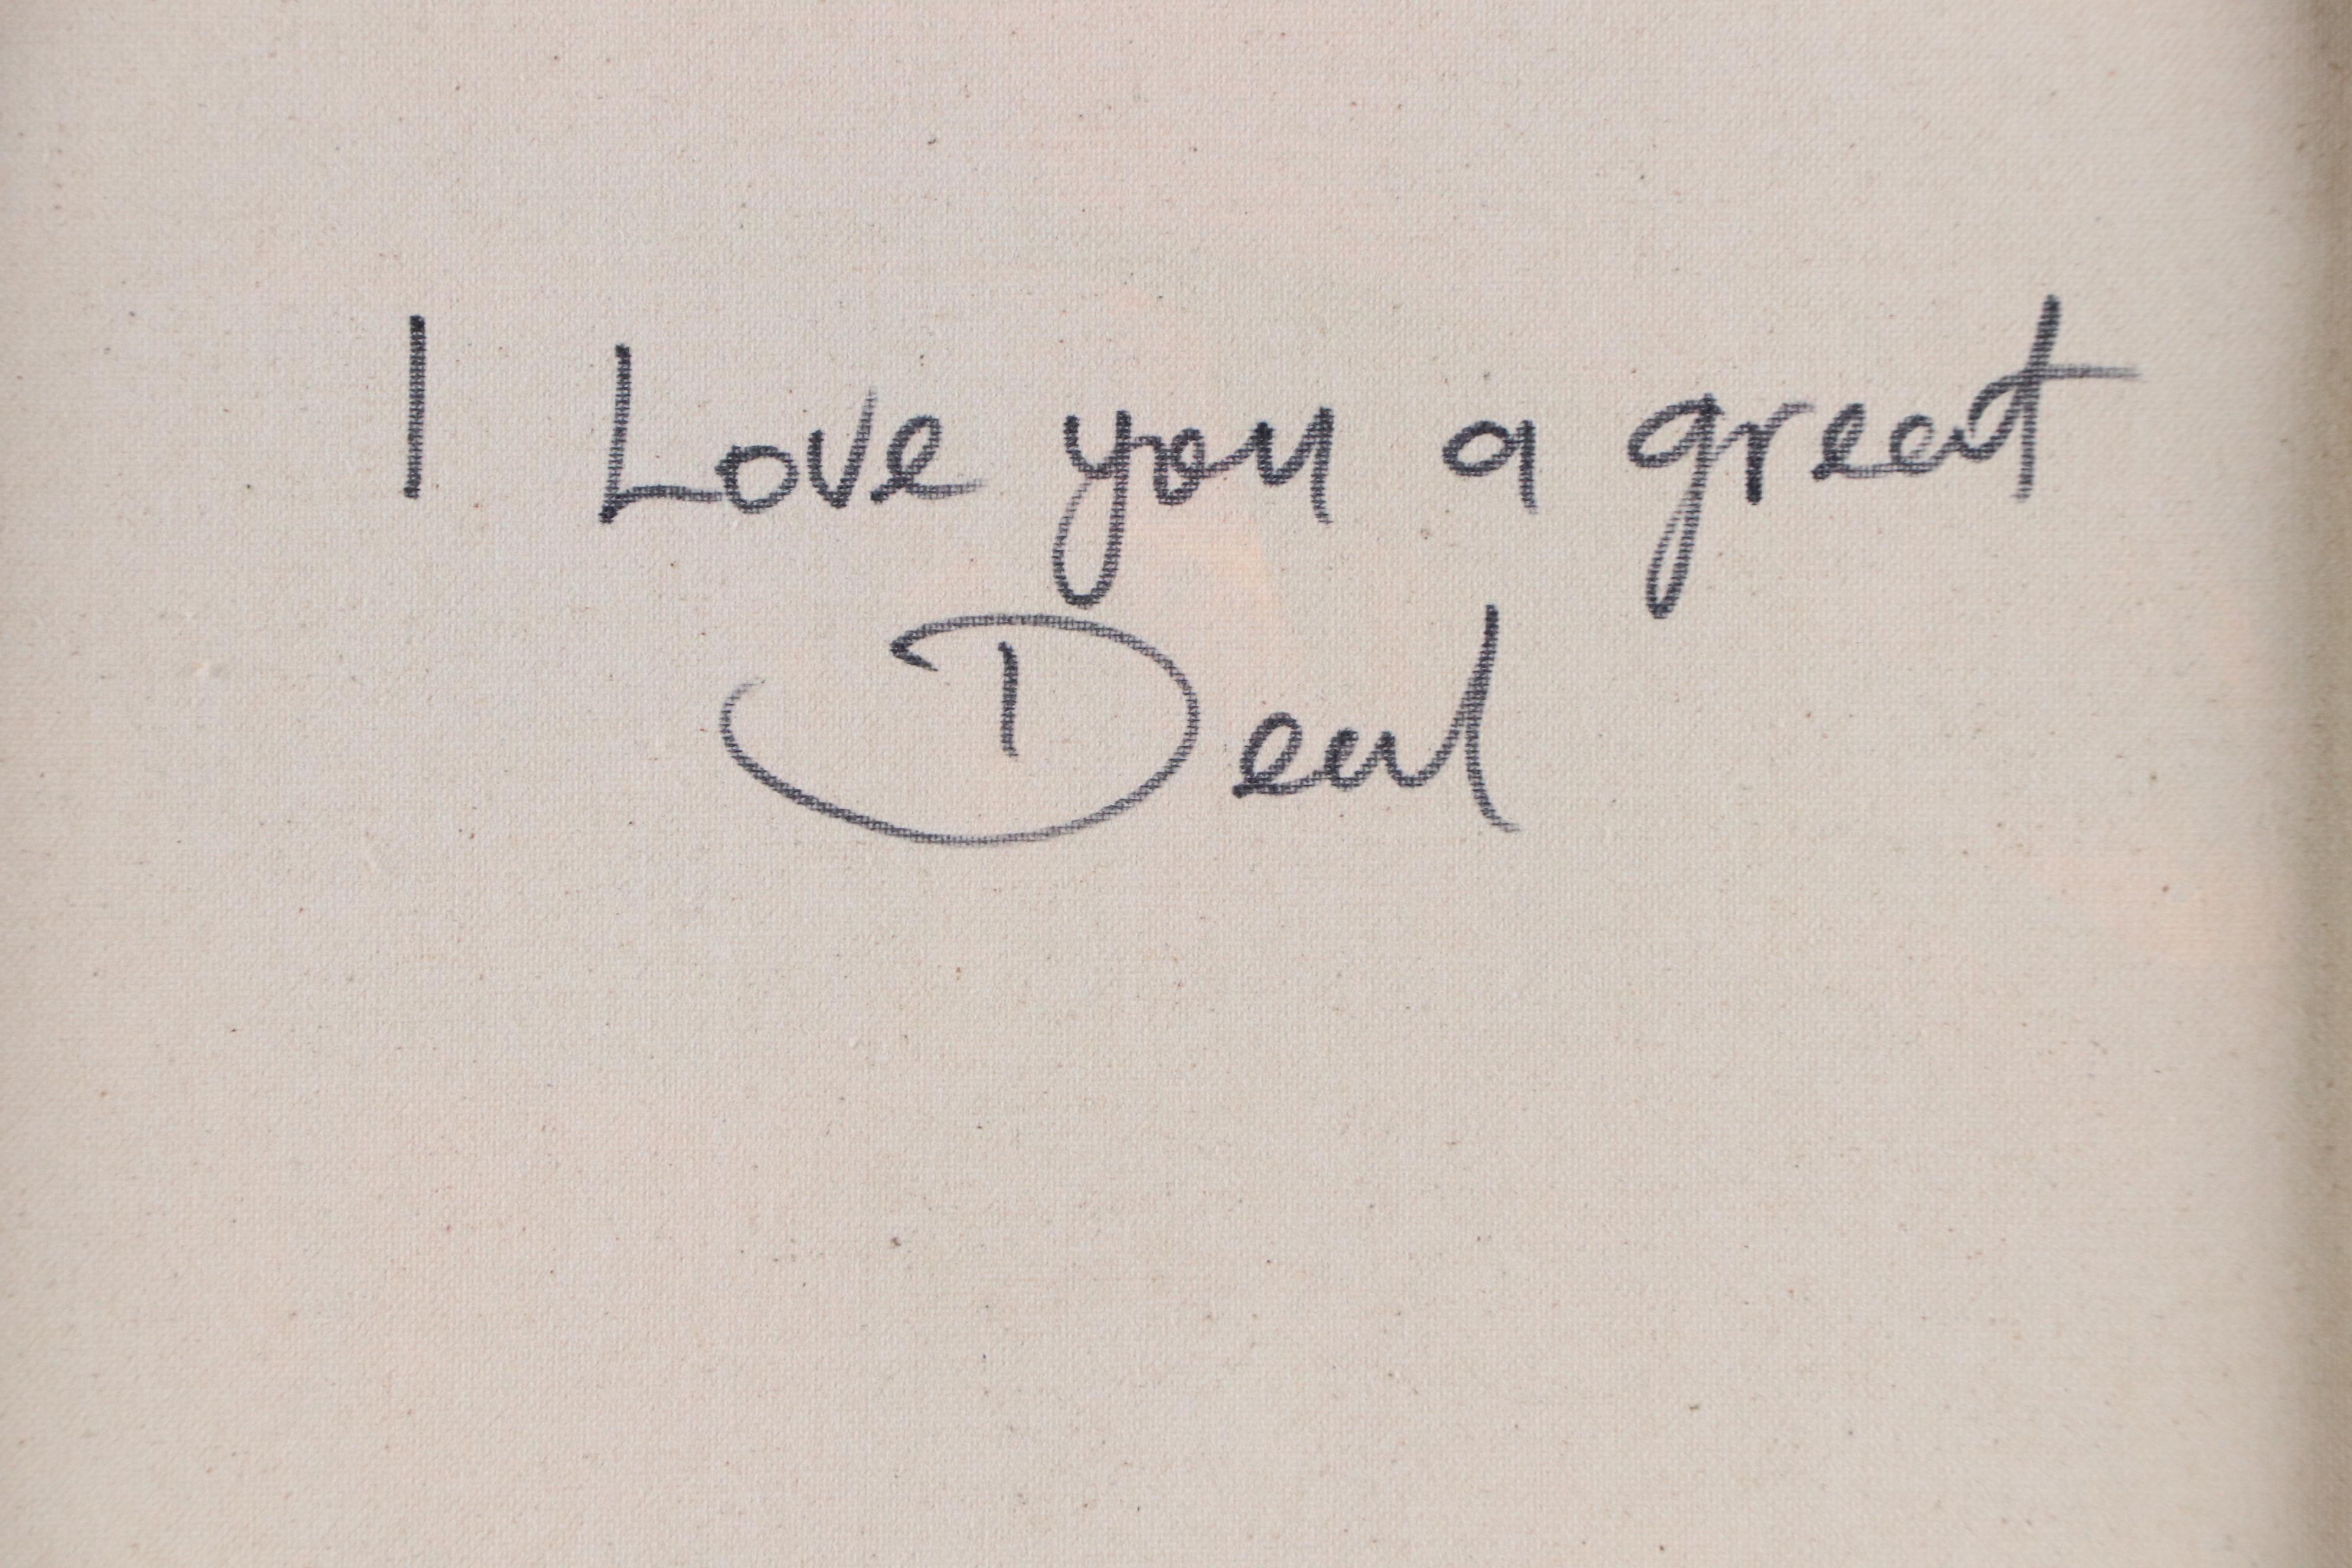 I Love you a great
Deal